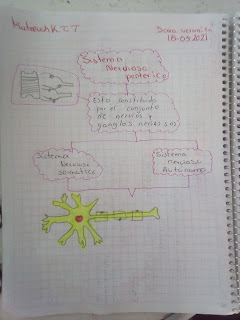 18-03-2021
Sistema
Nervioso
periferico
Esta constituido
por el conjunto
de nervios y
ganglios nerviosos
Sistema
nervioso
somatico
Sistema
nervioso
Autonomo